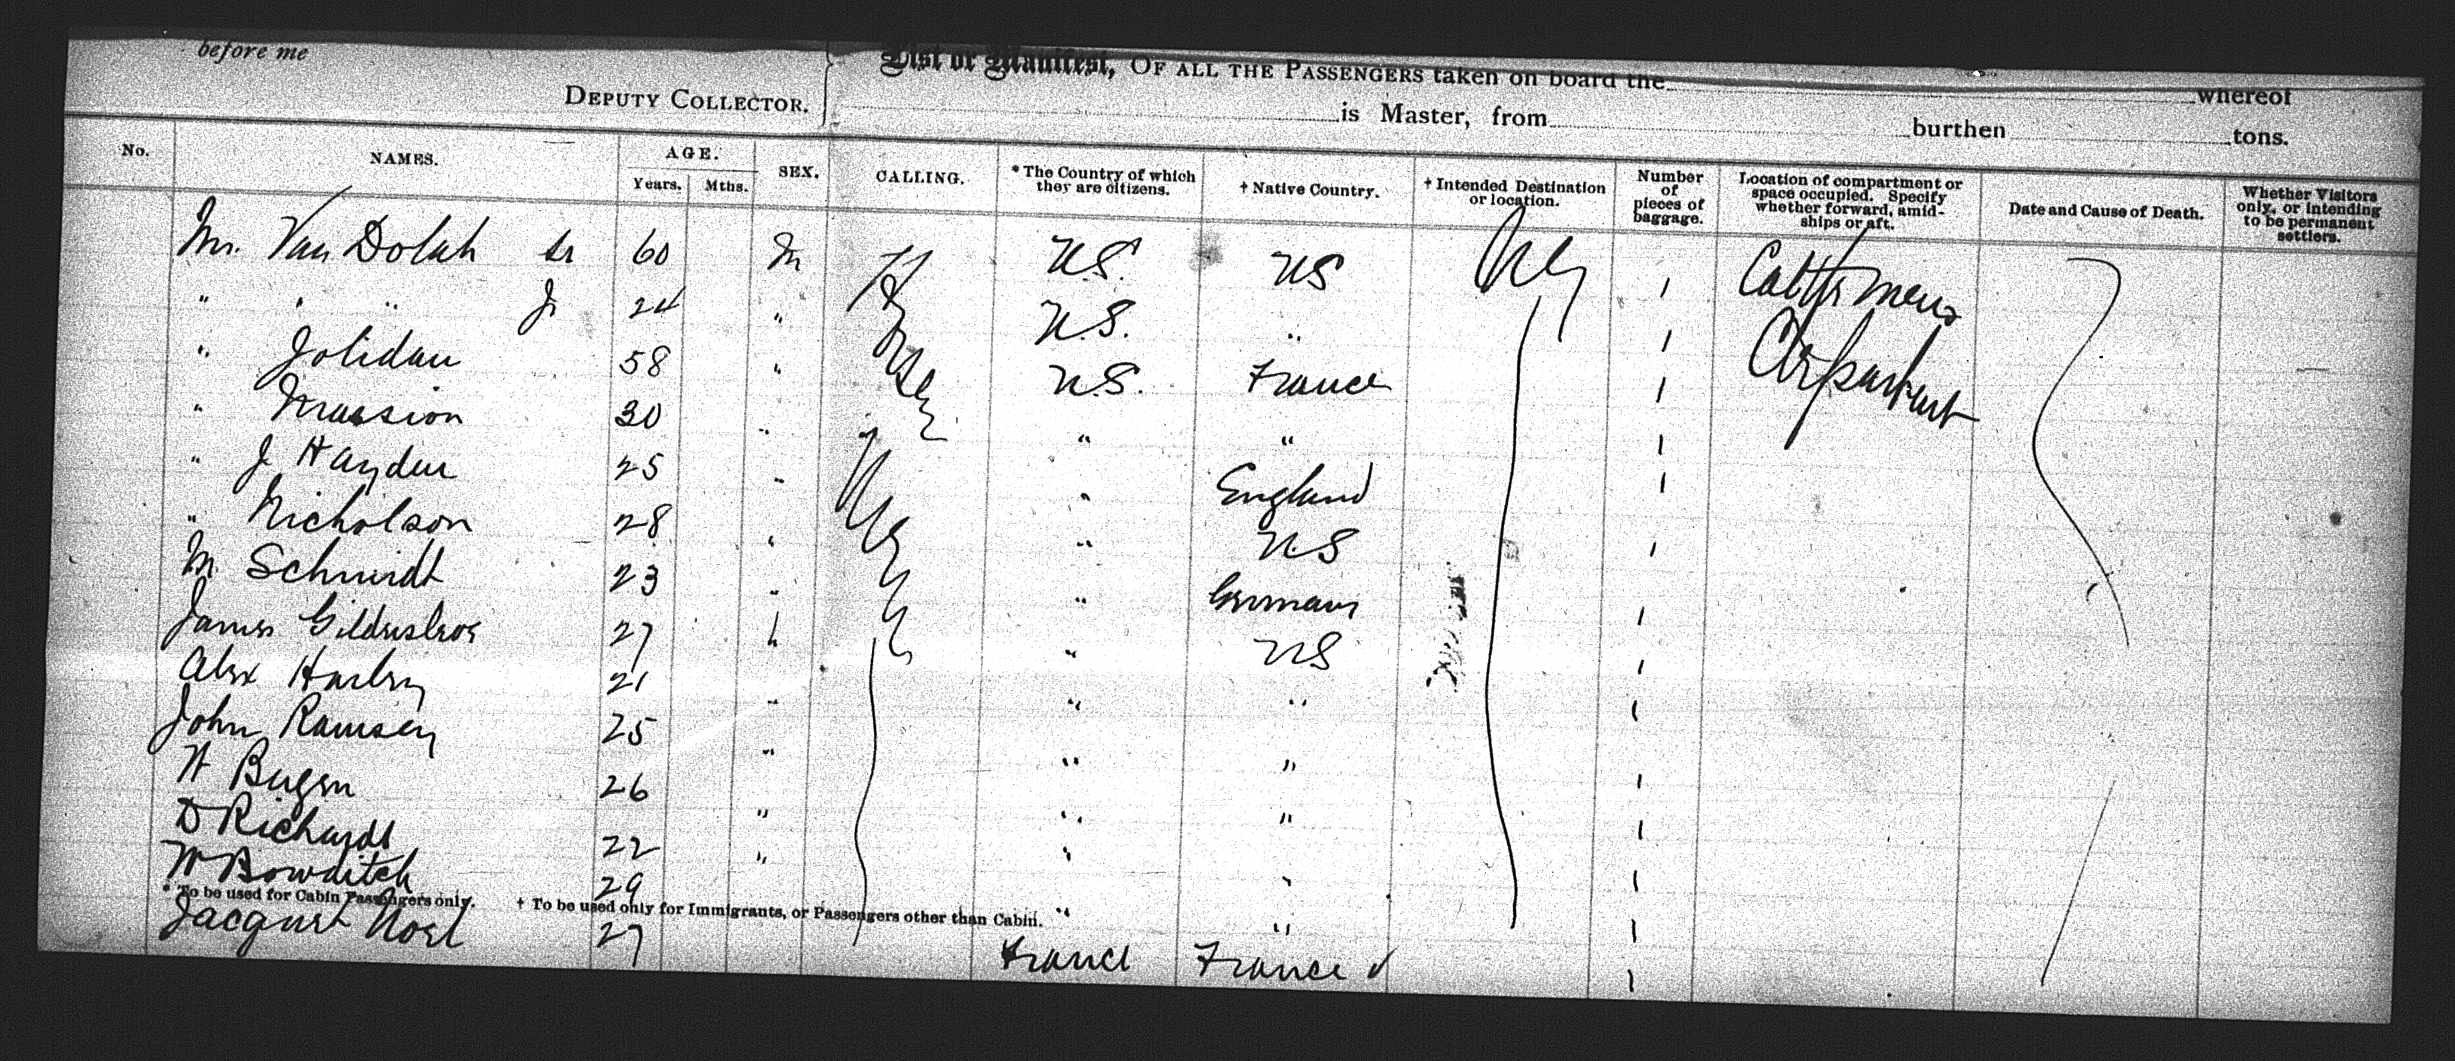 before me
DEPUTY COLLECTOR.
List or Manifest, OF ALL THE PASSENGERS taken on board the whereof
is Master, from burthen tons.
No. NAMES. AGE. Years. Mths. SEX. CALLING. * The Country of which they are citizens. † Native Country. † Intended Destination or location. Number of pieces of baggage. Location of compartment or space occupied. Specify whether forward, amidships or aft. Date and Cause of Death. Whether Visitors only, or intending to be permanent settlers.
Mr. Van Dolah Sr 60 M U.S. US NY 1
" " " Jr 24 " U.S. " 1
" Jolidau 58 " U.S. France 1
" Massion 30 " " " 1
" J Hayden 25 " " England 1
" Nicholson 28 " " US 1
M Schmidt 23 " " Germany
James 27 " " US 1
Alex Harley 21 " " " 1
John Ramsey 25 " " " 1
26 " " " 1
D Richardt 22 " " " 1
W Bowditch 29 " " 1
* To be used for Cabin Passengers only. † To be used only for Immigrants, or Passengers other than Cabin.
Noel 27 France France 1